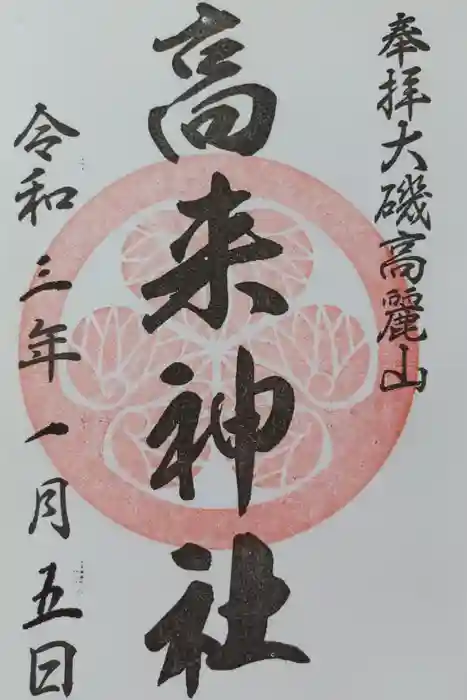 奉拝大磯高麗山
高来神社
令和三年一月五日